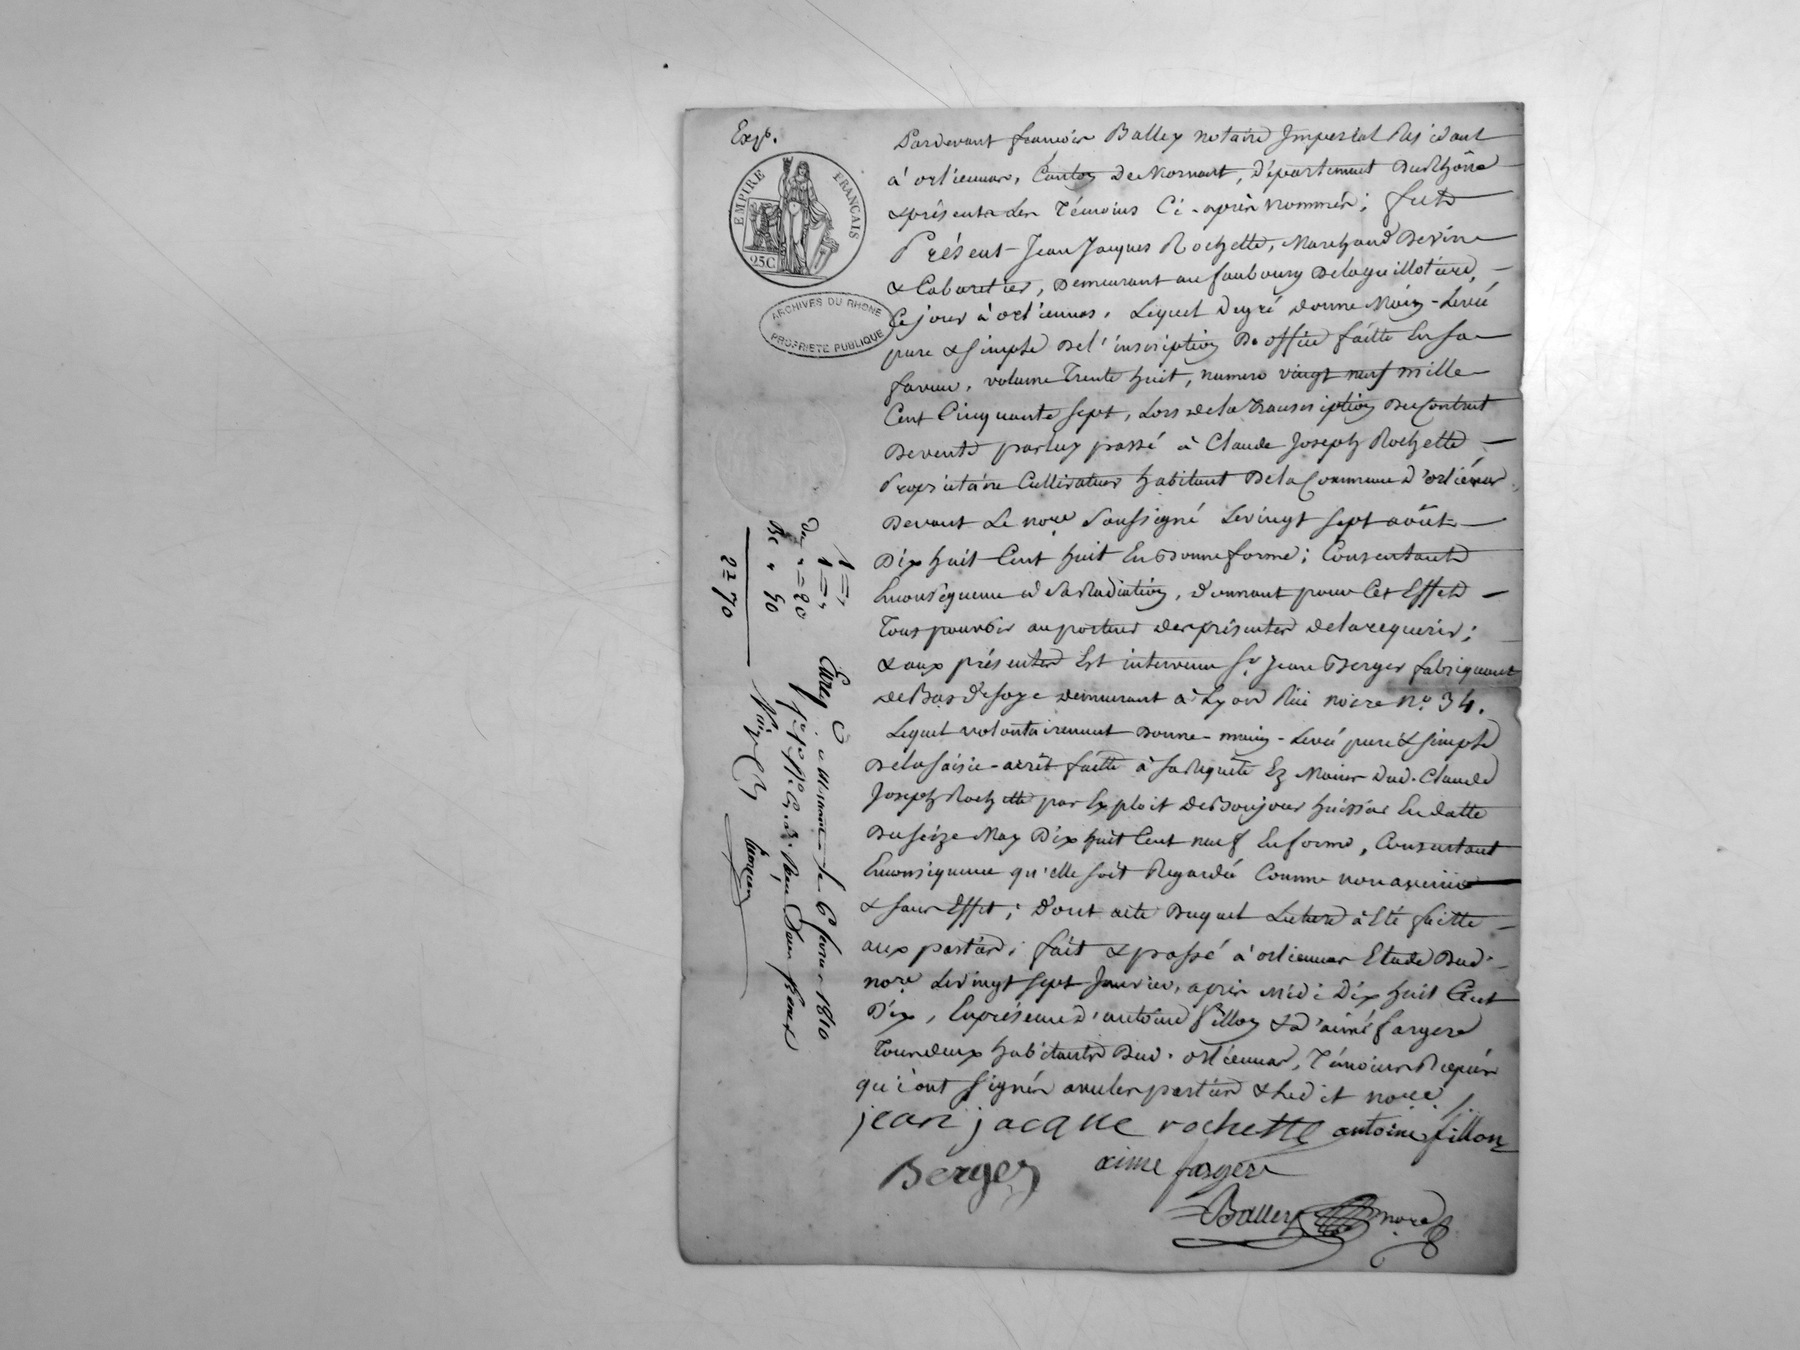 Expé.
EMPIRE FRANÇAIS
25C
ARCHIVES DU RHONE
PROPRIÉTÉ PUBLIQUE
Pardevant françois Balley notaire Imperial Residant
à orliennas, Canton De Mornant, Département Du Rhône
& présents les Témoins Ci-après nommés; fut
Présent Jean Jacques Rochette, Marchand De vin
& Cabaretier, Demeurant au faubourg Delaguillotière,
Ce jour à orliennas. Lequel De gré donne Main-Levée
pure & simple De l'inscription D'office faitte En sa
faveur, volume Trente huit, numero vingt neuf mille
Cent Cinquante sept, Lors de la Transcription Du Contrat
De vente par luy passé à Claude Joseph Rochette
Proprietaire Cultivateur habitant De la Commune d'orliénas
Devant Le nore Soussigné Le vingt sept août
Dix huit Cent huit En Bonne forme; Consentant
En conséquence à Sa Radiation, donnant pour Cet Effet
Tous pouvoir au porteur des présentes de la requerir;
& aux présentes Est intervenu Sr. Jean Berger fabriquant
de Bas de soye demeurant à Lyon Rüe noire No. 34.
Lequel volontairement Donne main-Levée pure & simple
De la saisie-arrêt faitte à sa Requête Ez Mains Dud. Claude
Joseph Rochette par Exploit de Bonjour huissier En datte
Du seize May Dix huit Cent neuf En forme, Consentant
En conséquence qu'elle soit Regardée Comme non avenüe
& sans Effet; d'ont acte Duquel Lecture à Eté faitte
aux parties; fait & passé à orliennas Etude Dud.
nore Le vingt sept Janvier, après Midi Dix huit Cent
Dix, En présence d'antoine fillon & d'aimé fargere
Tous deux habitants Dud. orliennas, Témoins Requis
qui ont signés avec les parties & Led it nore ./.
jean jacque rochette antoine fillon
Berger aime fargere
Balley nore
Enreg
à Mornant le 6 fevrier 1810
2=70